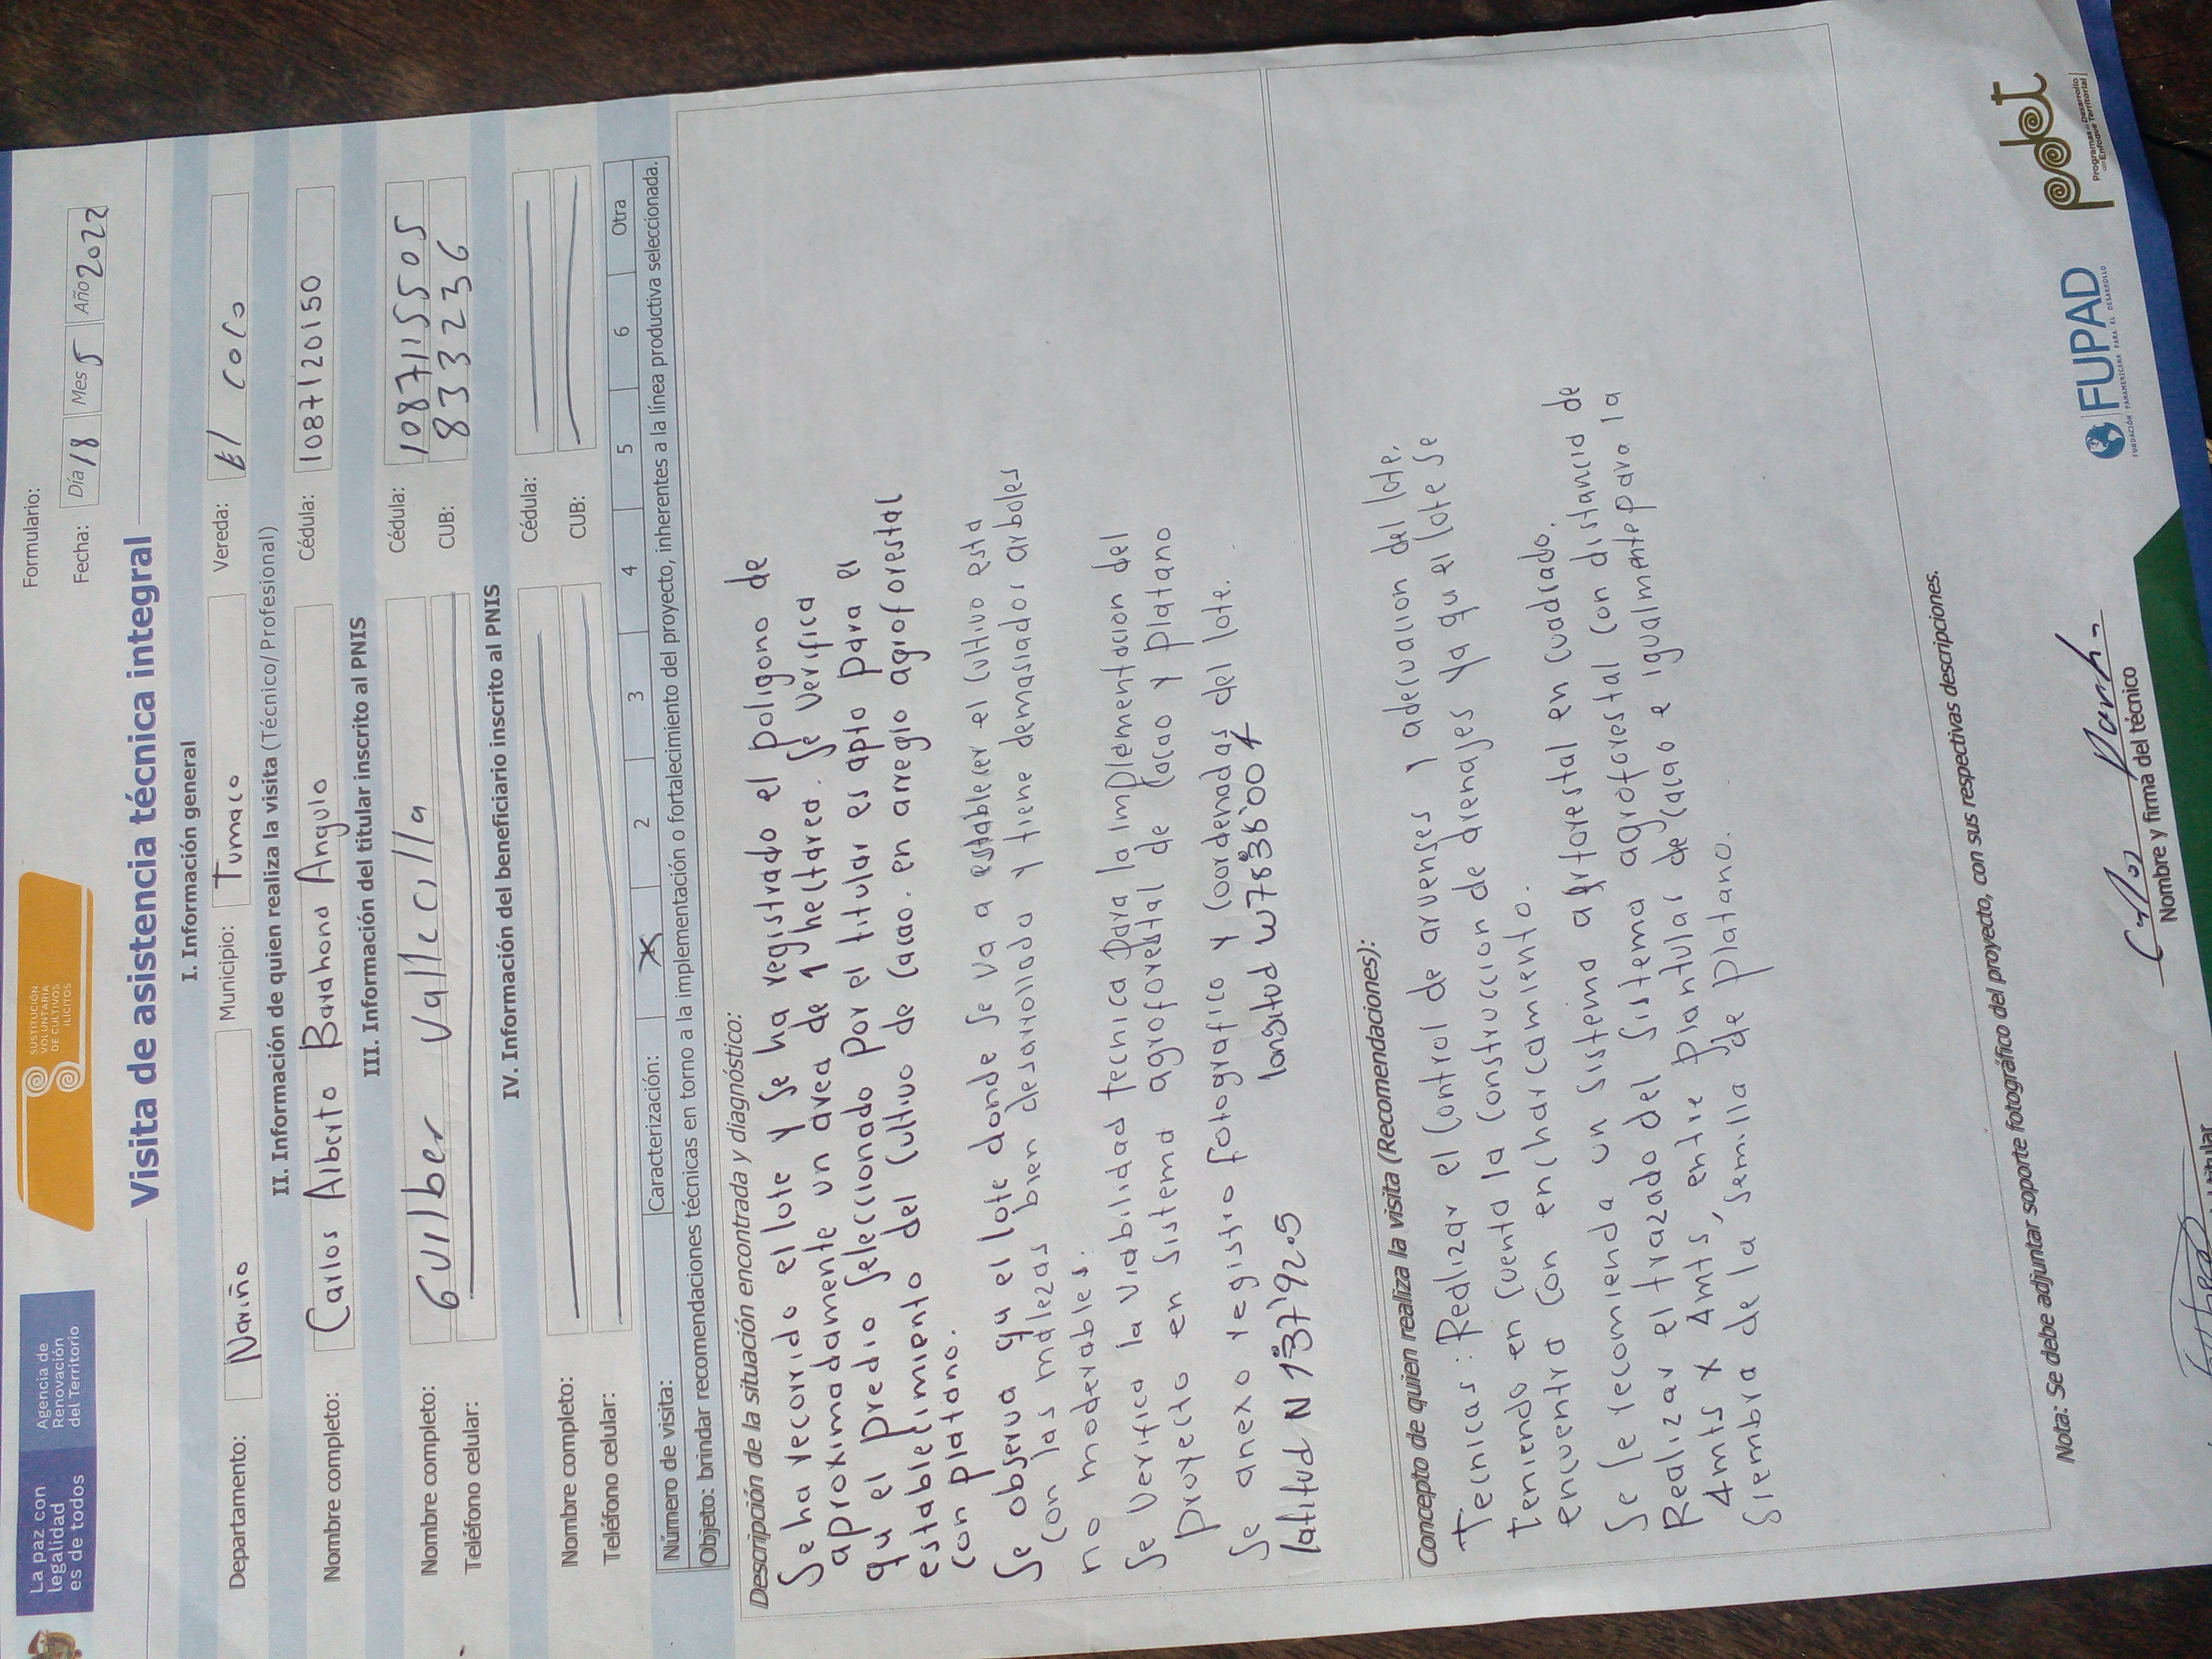 La paz con
legalidad
es de todos
Agencia de
Renovación
del Territorio
SUSTITUCIÓN
VOLUNTARIA
DE CULTIVOS
ILÍCITOS
Formulario:
Fecha: Día 18 Mes 5 Año 2022
Visita de asistencia técnica integral
I. Información general
Departamento: Nariño Municipio: Tumaco Vereda: El coco
II. Información de quien realiza la visita (Técnico/Profesional)
Nombre completo: Carlos Alberto Barahona Angulo Cédula: 1087120150
III. Información del titular inscrito al PNIS
Nombre completo: Guilber Vallecilla Cédula: 1087115505
Teléfono celular: CUB: 8332236
IV. Información del beneficiario inscrito al PNIS
Nombre completo: Cédula:
Teléfono celular: CUB:
Número de visita: Caracterización: X 2 3 4 5 6 Otra
Objeto: brindar recomendaciones técnicas en torno a la implementación o fortalecimiento del proyecto, inherentes a la línea productiva seleccionada.
Descripción de la situación encontrada y diagnóstico:
Se ha recorrido el lote y se ha registrado el poligono de
aproximadamente un area de 1 hectarea. Se verifica
qu el predio seleccionado por el titular es apto para el
establecimiento del cultivo de cacao. en arreglo agroforestal
con platano.
Se observa qu el lote donde se va a establecer el cultivo esta
con las malezas bien desarrollado y tiene demasiados arboles
no moderables.
Se verifica la viabilidad tecnica para la implementacion del
proyecto en sistema agroforestal de cacao y platano
Se anexo registro fotografico y coordenadas del lote.
latitud N 1°37'92.5 longitud W78°38'00.4
Concepto de quien realiza la visita (Recomendaciones):
Tecnicas: Realizar el control de arvenses y adecuacion del lote,
teniendo en cuenta la construccion de drenajes ya qu el lote se
encuentra con encharcamiento.
Se le recomienda un sistema agrforestal en cuadrado.
Realizar el trazado del sistema agroforestal con distancia de
4mts x 4mts, entre plantulas de cacao e igualmente para la
siembra de la semilla de platano.
Nota: Se debe adjuntar soporte fotográfico del proyecto, con sus respectivas descripciones.
Nombre y firma del técnico
FUPAD
FUNDACIÓN PANAMERICANA PARA EL DESARROLLO
pdet
Programas de Desarrollo
con Enfoque Territorial